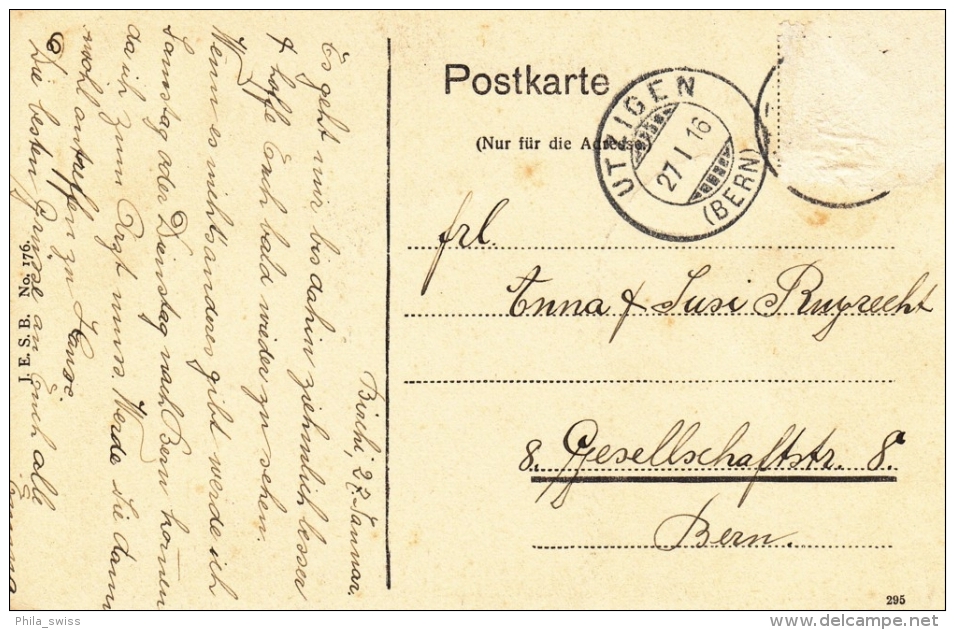 Birchi, 27. Januar.
Es geht mir bis dahin ziehmlich besser
& hoffe Euch bald wieder zu sehen.
Wenn es nichts andres gibt werde ich
Samstag oder Dienstag nach Bern kommen
da ich zum Arzt muss. Werde Sie dann
wohl antreffen zu Hause.
Die besten Grüsse an Euch alle
Emma
J. E. S. B. No. 176.
Postkarte
(Nur für die Adresse)
UTZIGEN
27 I 16
(BERN)
Frl.
Anna & Susi Ruprecht
8. Gesellschaftstr. 8.
Bern.
295
Phila_swiss
delcampe.net